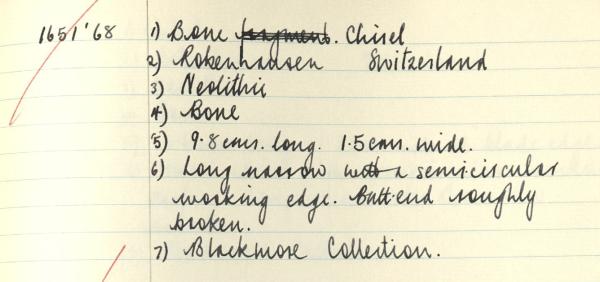 1651'68 1) Bone fragment. Chisel
2) Robenhausen Switzerland
3) Neolithic
4) Bone
5) 9.8cms. long. 1.5cms. wide.
6) Long narrow with a semicircular
working edge. Butt-end roughly
broken.
7) Blackmore Collection.